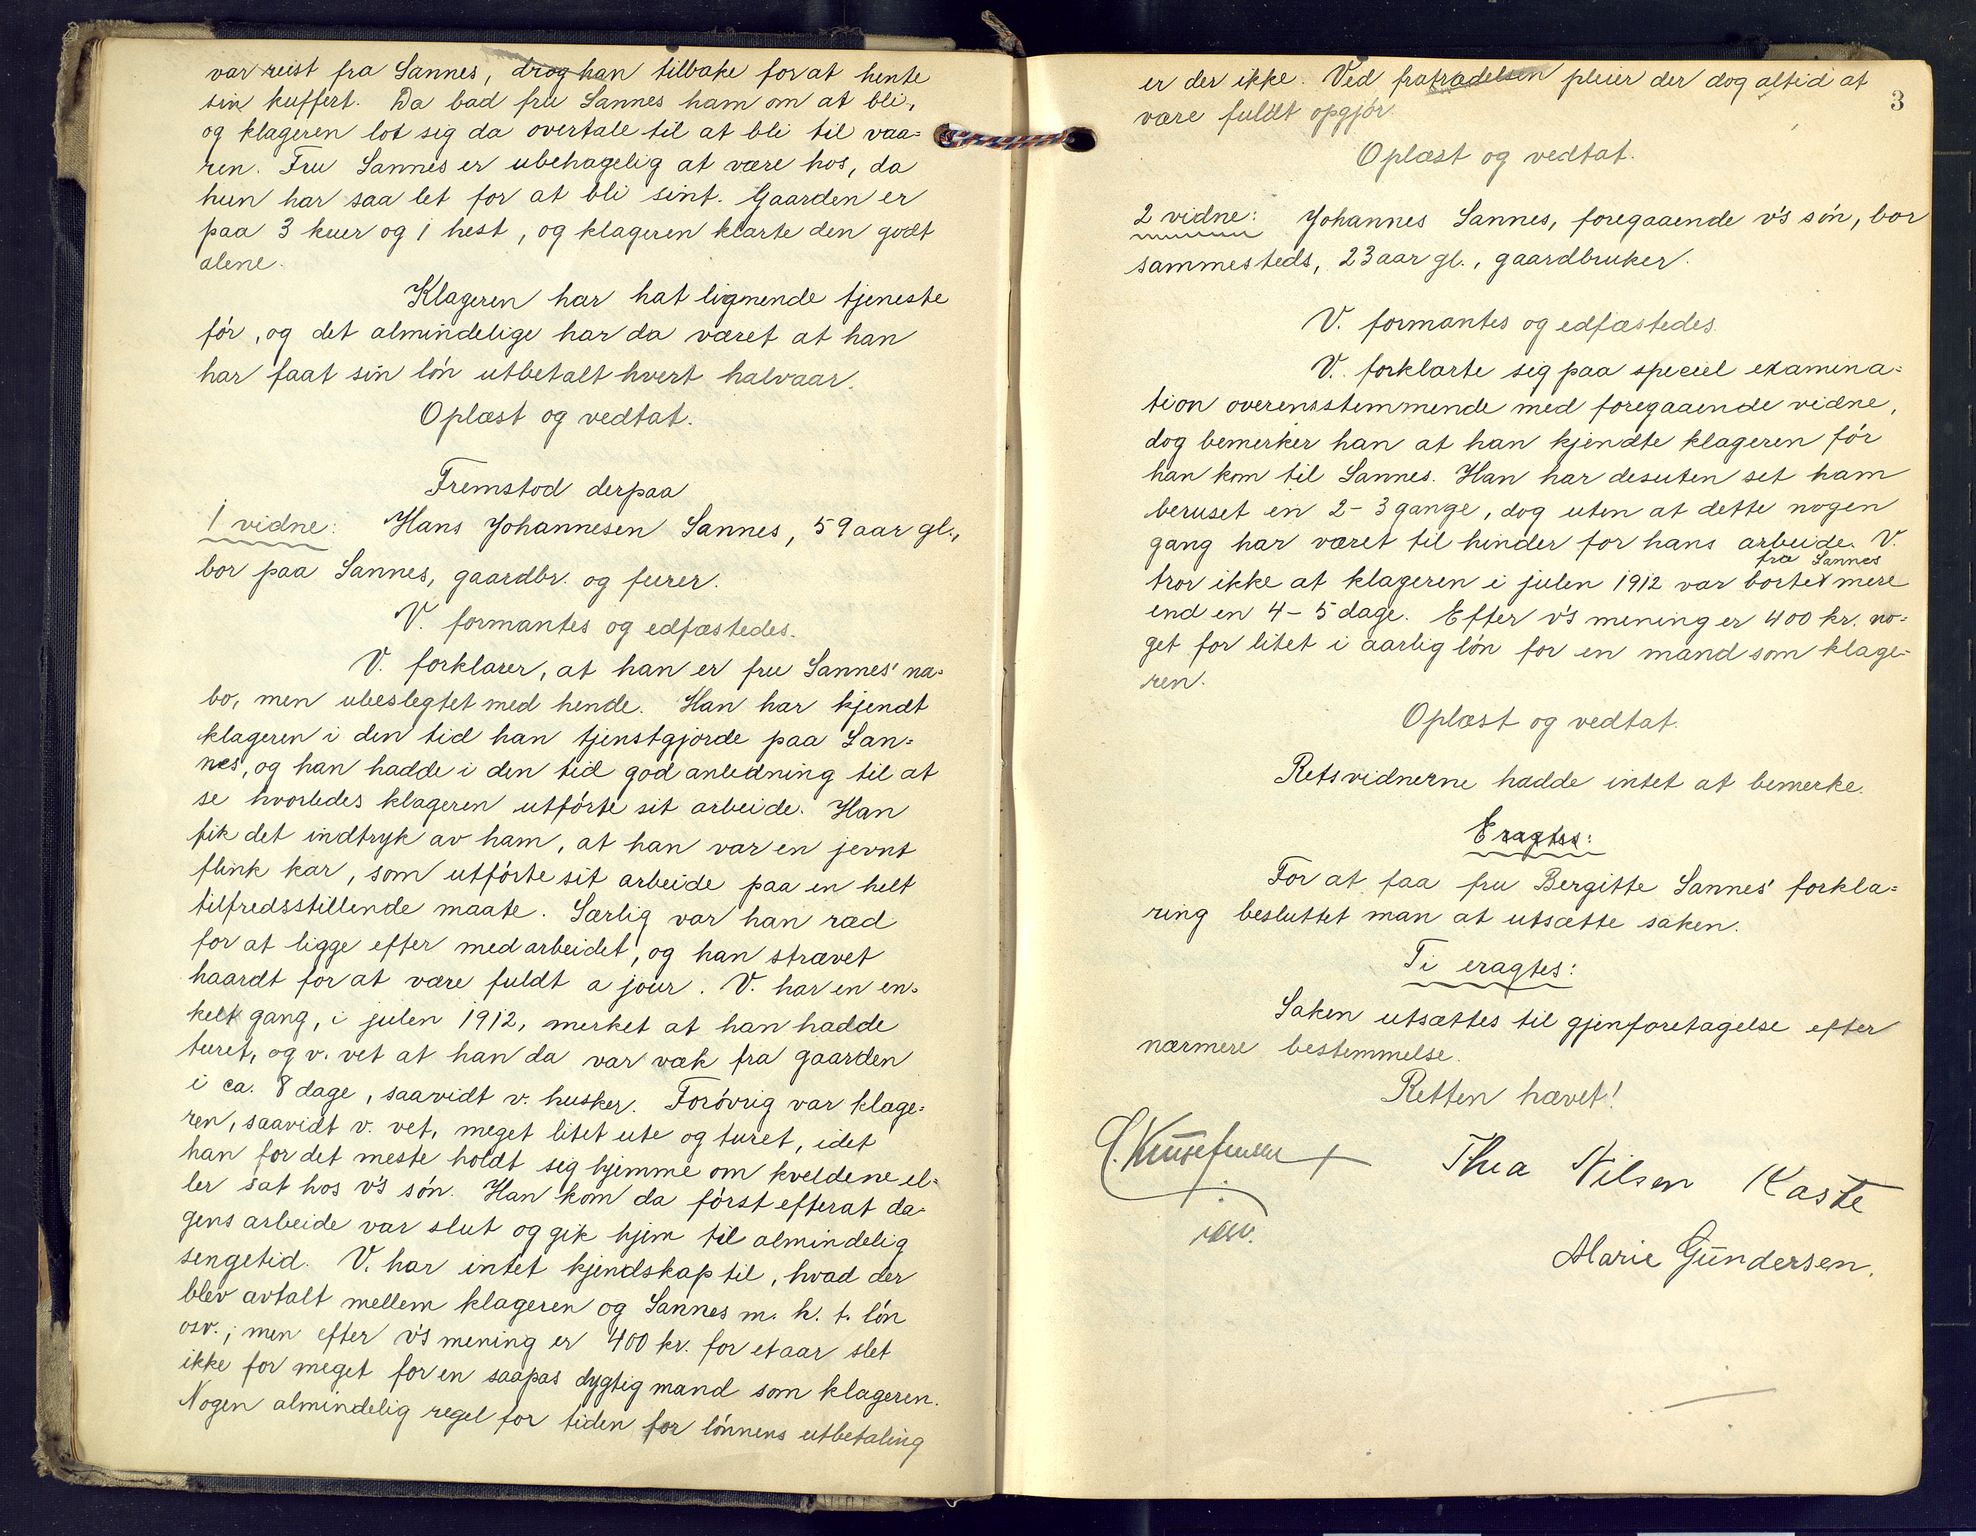 var reist fra Sannes, drog han tilbake for at hente
sin kuffert. Da bad fru Sannes ham om at bli,
og klageren lot sig da overtale til at bli til vaa-
ren. Fru Sannes er ubehagelig at være hos, da
hun har saa let for at bli sint. Gaarden er
paa 3 kuer og 1 hest, og klageren klarte den godt
alene.
Klageren har hat lignende tjeneste
før, og det almindelige har da været at han
har faat sin løn utbetalt hvert halvaar.
Oplæst og vedtat.
Fremstod derpaa
1 vidne: Hans Johannesen Sannes, 59 aar gl.,
bor paa Sannes, gaardbr. og furer.
V. formantes og edfæstedes.
V. forklarer, at han er fru Sannes' na-
bo, men ubeslegtet med hende. Han har kjendt
klageren i den tid han tjenstgjorde paa San-
nes, og han hadde i den tid god anledning til at
se hvorledes klageren utførte sit arbeide. Han
fik det indtryk av ham, at han var en jevnt
flink kar, som utførte sit arbeide paa en helt
tilfredsstillende maate. Særlig var han ræd
for at ligge efter med arbeidet, og han strævet
haardt for at være fuldt a jour. V. har en en-
kelt gang, i julen 1912, merket at han hadde
turet, og v. vet at han da var væk fra gaarden
i ca. 8 dage, saavidt v. husker. Forøvrig var klage-
ren, saavidt v. vet, meget litet ute og turet, idet
han for det meste holdt sig hjemme om kveldene el-
ler sat hos v's søn. Han kom da først efterat da-
gens arbeide var slut og gik hjem til almindelig
sengetid. V. har intet kjendskap til, hvad der
blev avtalt mellem klageren og Sannes m. h. t. løn
osv.; men efter v's mening er 400 kr. for et aar slet
ikke for meget for en saapas dygtig mand som klageren.
Nogen almindelig regel for tiden for lønnens utbetaling
3
er der ikke. Ved fratrædelsen pleier der dog altid at
være fuldt opgjør.
Oplæst og vedtat.
2 vidne: Johannes Sannes, foregaaende v's søn, bor
sammesteds, 23 aar gl., gaardbruker.
V. formantes og edfæstedes.
V. forklarte sig paa speciel examina-
tion overensstemmende med foregaaende vidne,
dog bemerker han at han kjendte klageren før
han kom til Sannes. Han har desuten set ham
beruset en 2-3 gange, dog uten at dette nogen
gang har været til hinder for hans arbeide. V.
fra Sannes
tror ikke at klageren i julen 1912 var borte mere
end en 4-5 dage. Efter v's mening er 400 kr. no-
get for litet i aarlig løn for en mand som klage-
ren.
Oplæst og vedtat.
Retsvidnerne hadde intet at bemerke.
Eragtes:
For at faa fru Bergitte Sannes' forkla-
ring besluttet man at utsætte saken.
Ti eragtes:
Saken utsættes til gjenforetagelse efter
nærmere bestemmelse.
Retten hævet!
Thea Nilsen Kaste
Marie Gundersen.